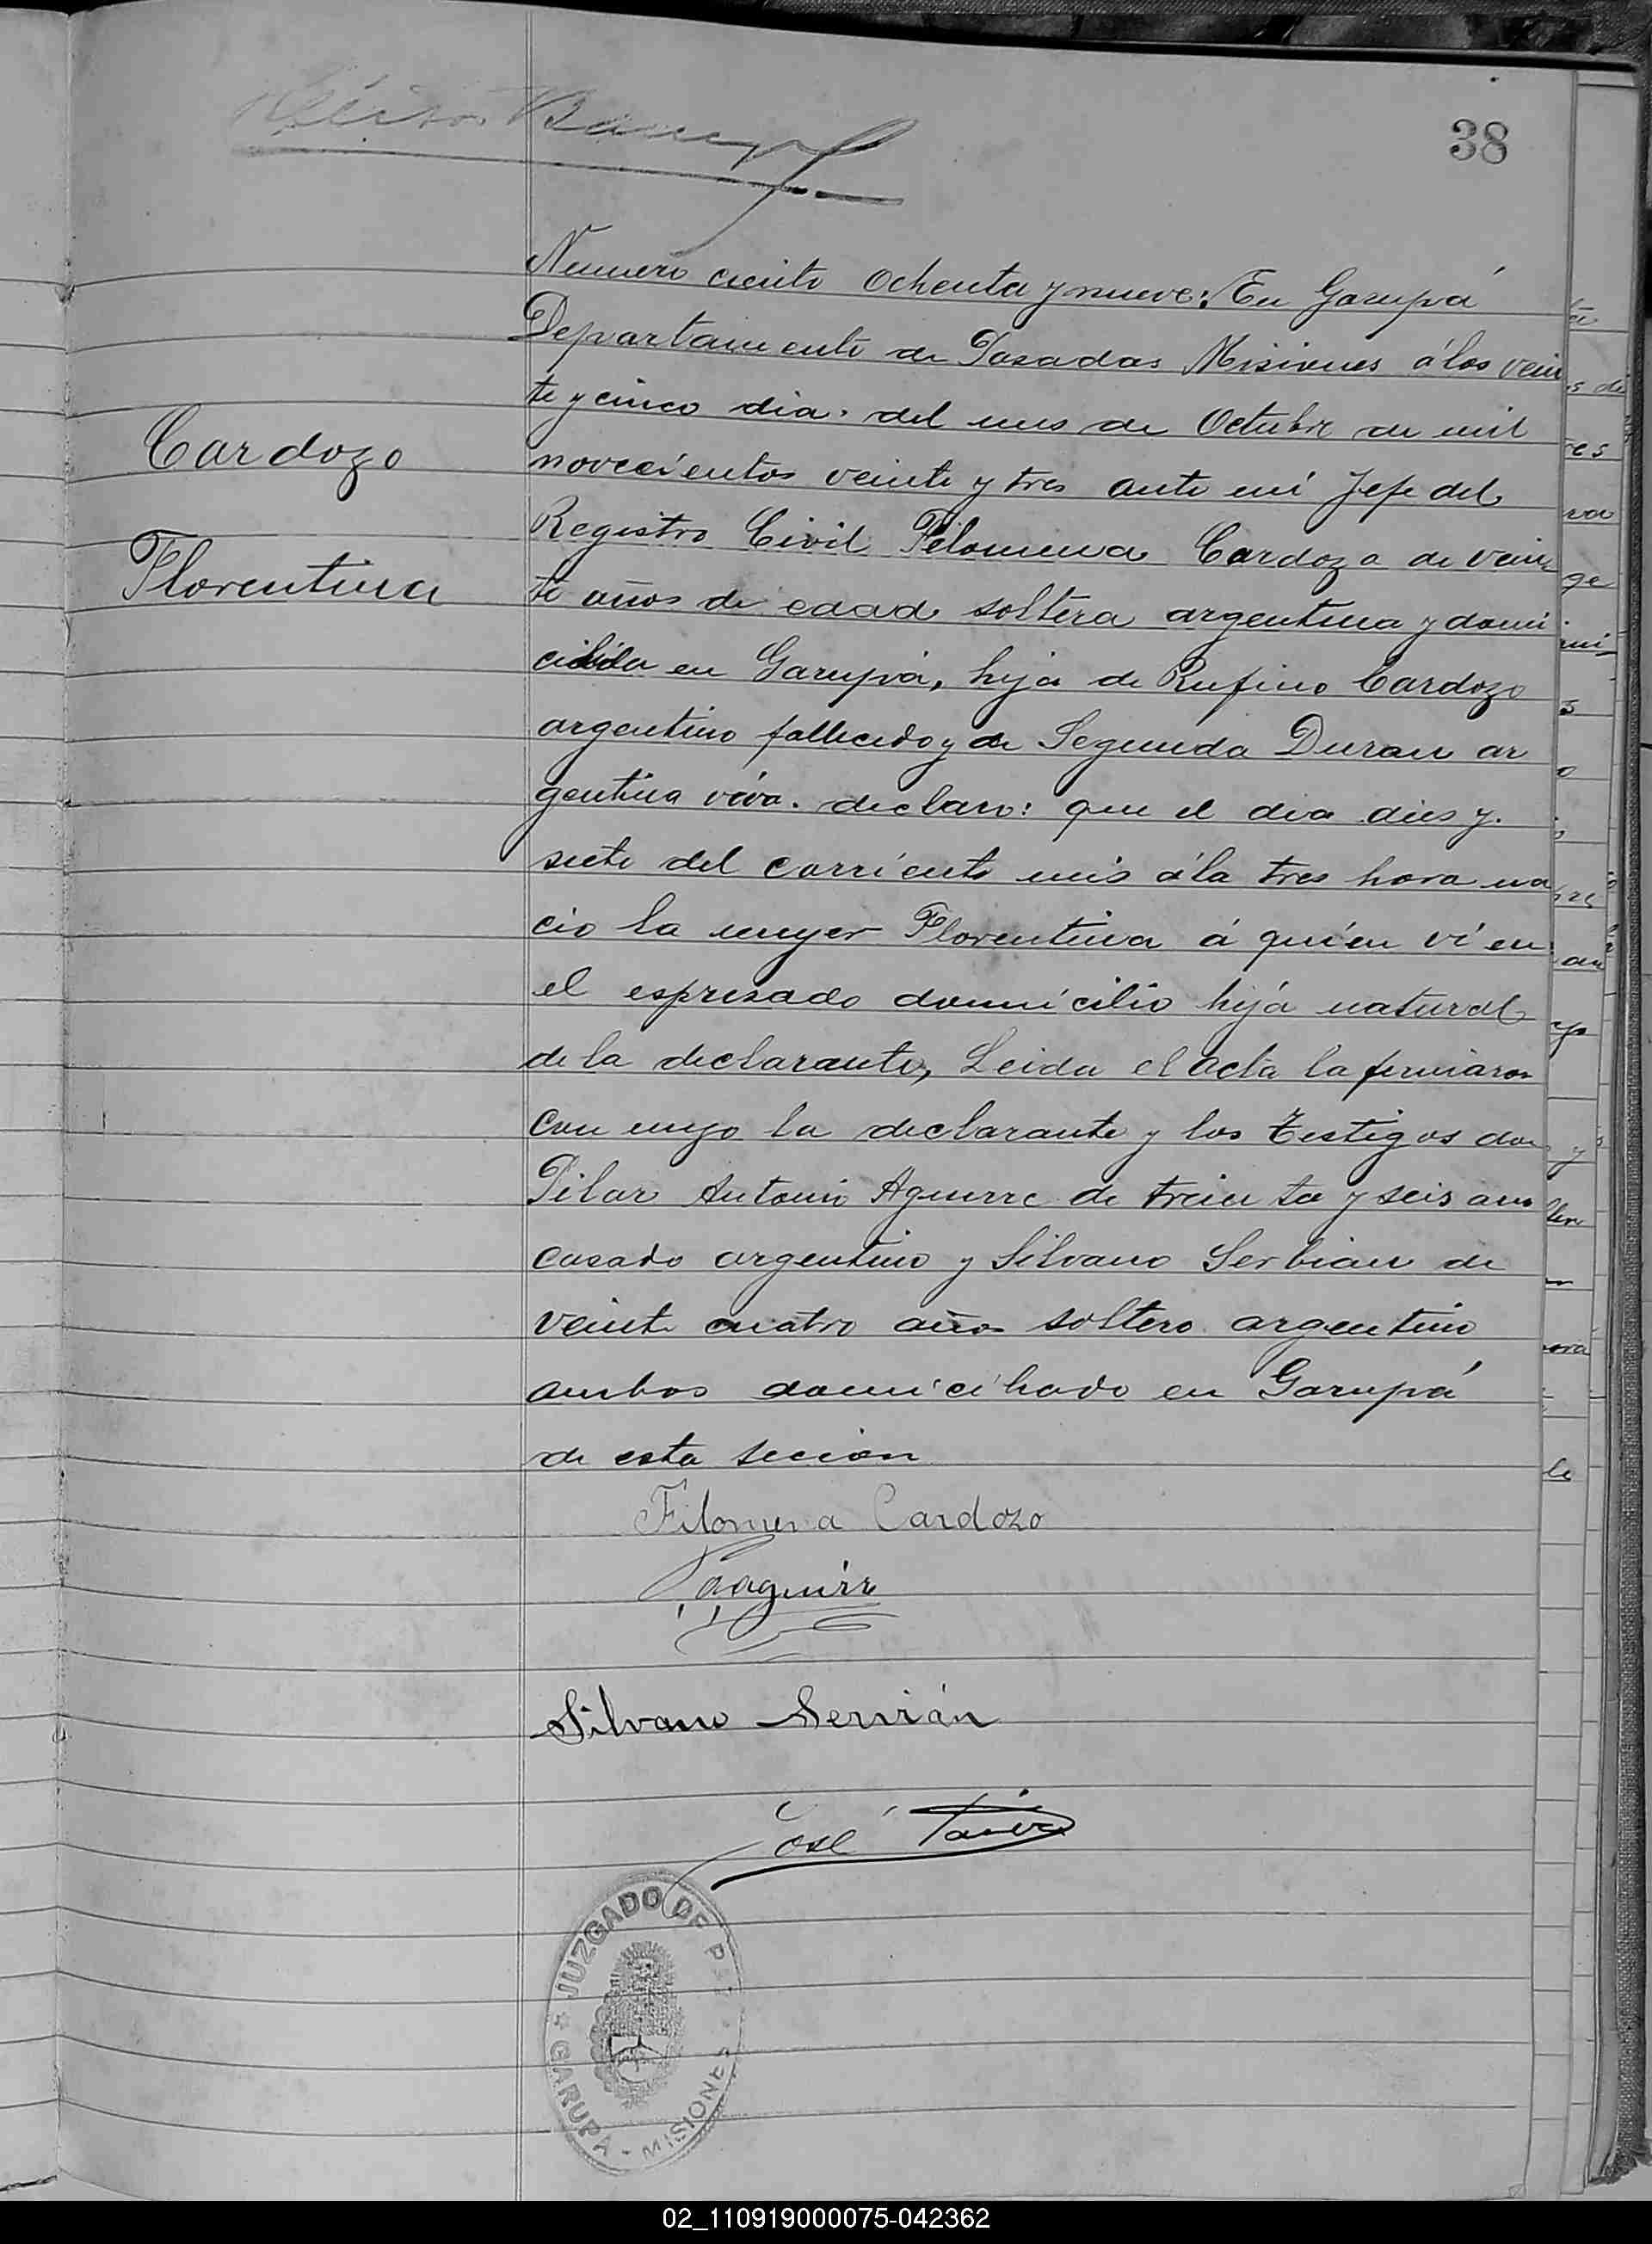 38
Numero ciento ochenta y nueve: En Garupá
Departamento de Posadas Misiones á los vein
te y cinco dia. del mes de Octubre de mil
Cardozo
novecientos veinte y tres ante mi Jefe del
Registro Civil Filomena Cardozo de vein
Florentina
te años de edad soltera argentina y domi
cilida en Garupá, hija de Rufino Cardozo
argentino fallecido y de Segunda Duran ar
gentina viva. declaro: que el dia dies y
siete del corriente mes á la tres hora na
cio la muyer Florentina á quien ví en
el espresado domicilio hija natural
de la declarante, Leida el acta la firmaron
con migo la declarante y los testigos don
Pilar Antonio Aguirre de treinta y seis años
casado argentino y Silvano Serbian de
veinte cuatro años soltero argentino
ambos domicihado en Garupá
de esta secion
Filomena Cardozo
Paaguirre
Silvano Servián
José
JUZGADO DE PAZ
GARUPA - MISIONES
02_110919000075-042362